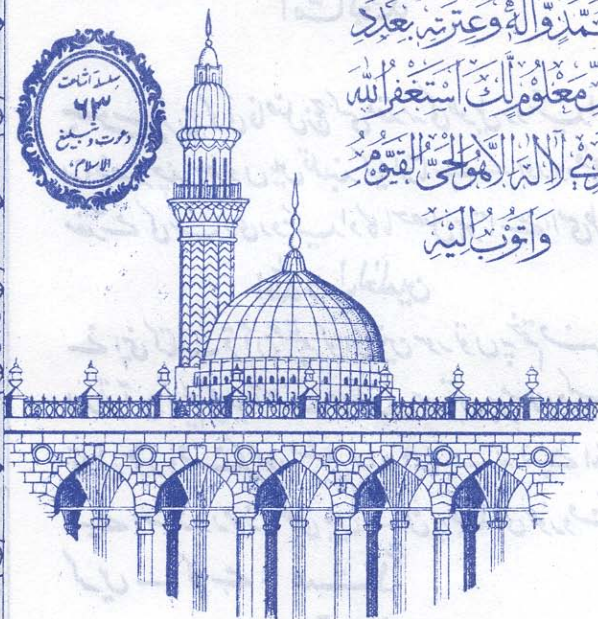 سلسلہ اشاعت
۶۳
دعوت و تبلیغ
الاسلام
وَّاٰلِهٖ وَعِتْرَتِهٖ بِعَدَدِ
مَعْلُوْمٍ لَّكَ اَسْتَغْفِرُ اللهَ
لَا اِلٰهَ اِلَّا هُوَ الْحَىُّ الْقَيُّوْمُ
وَاَتُوْبُ اِلَيْهِ